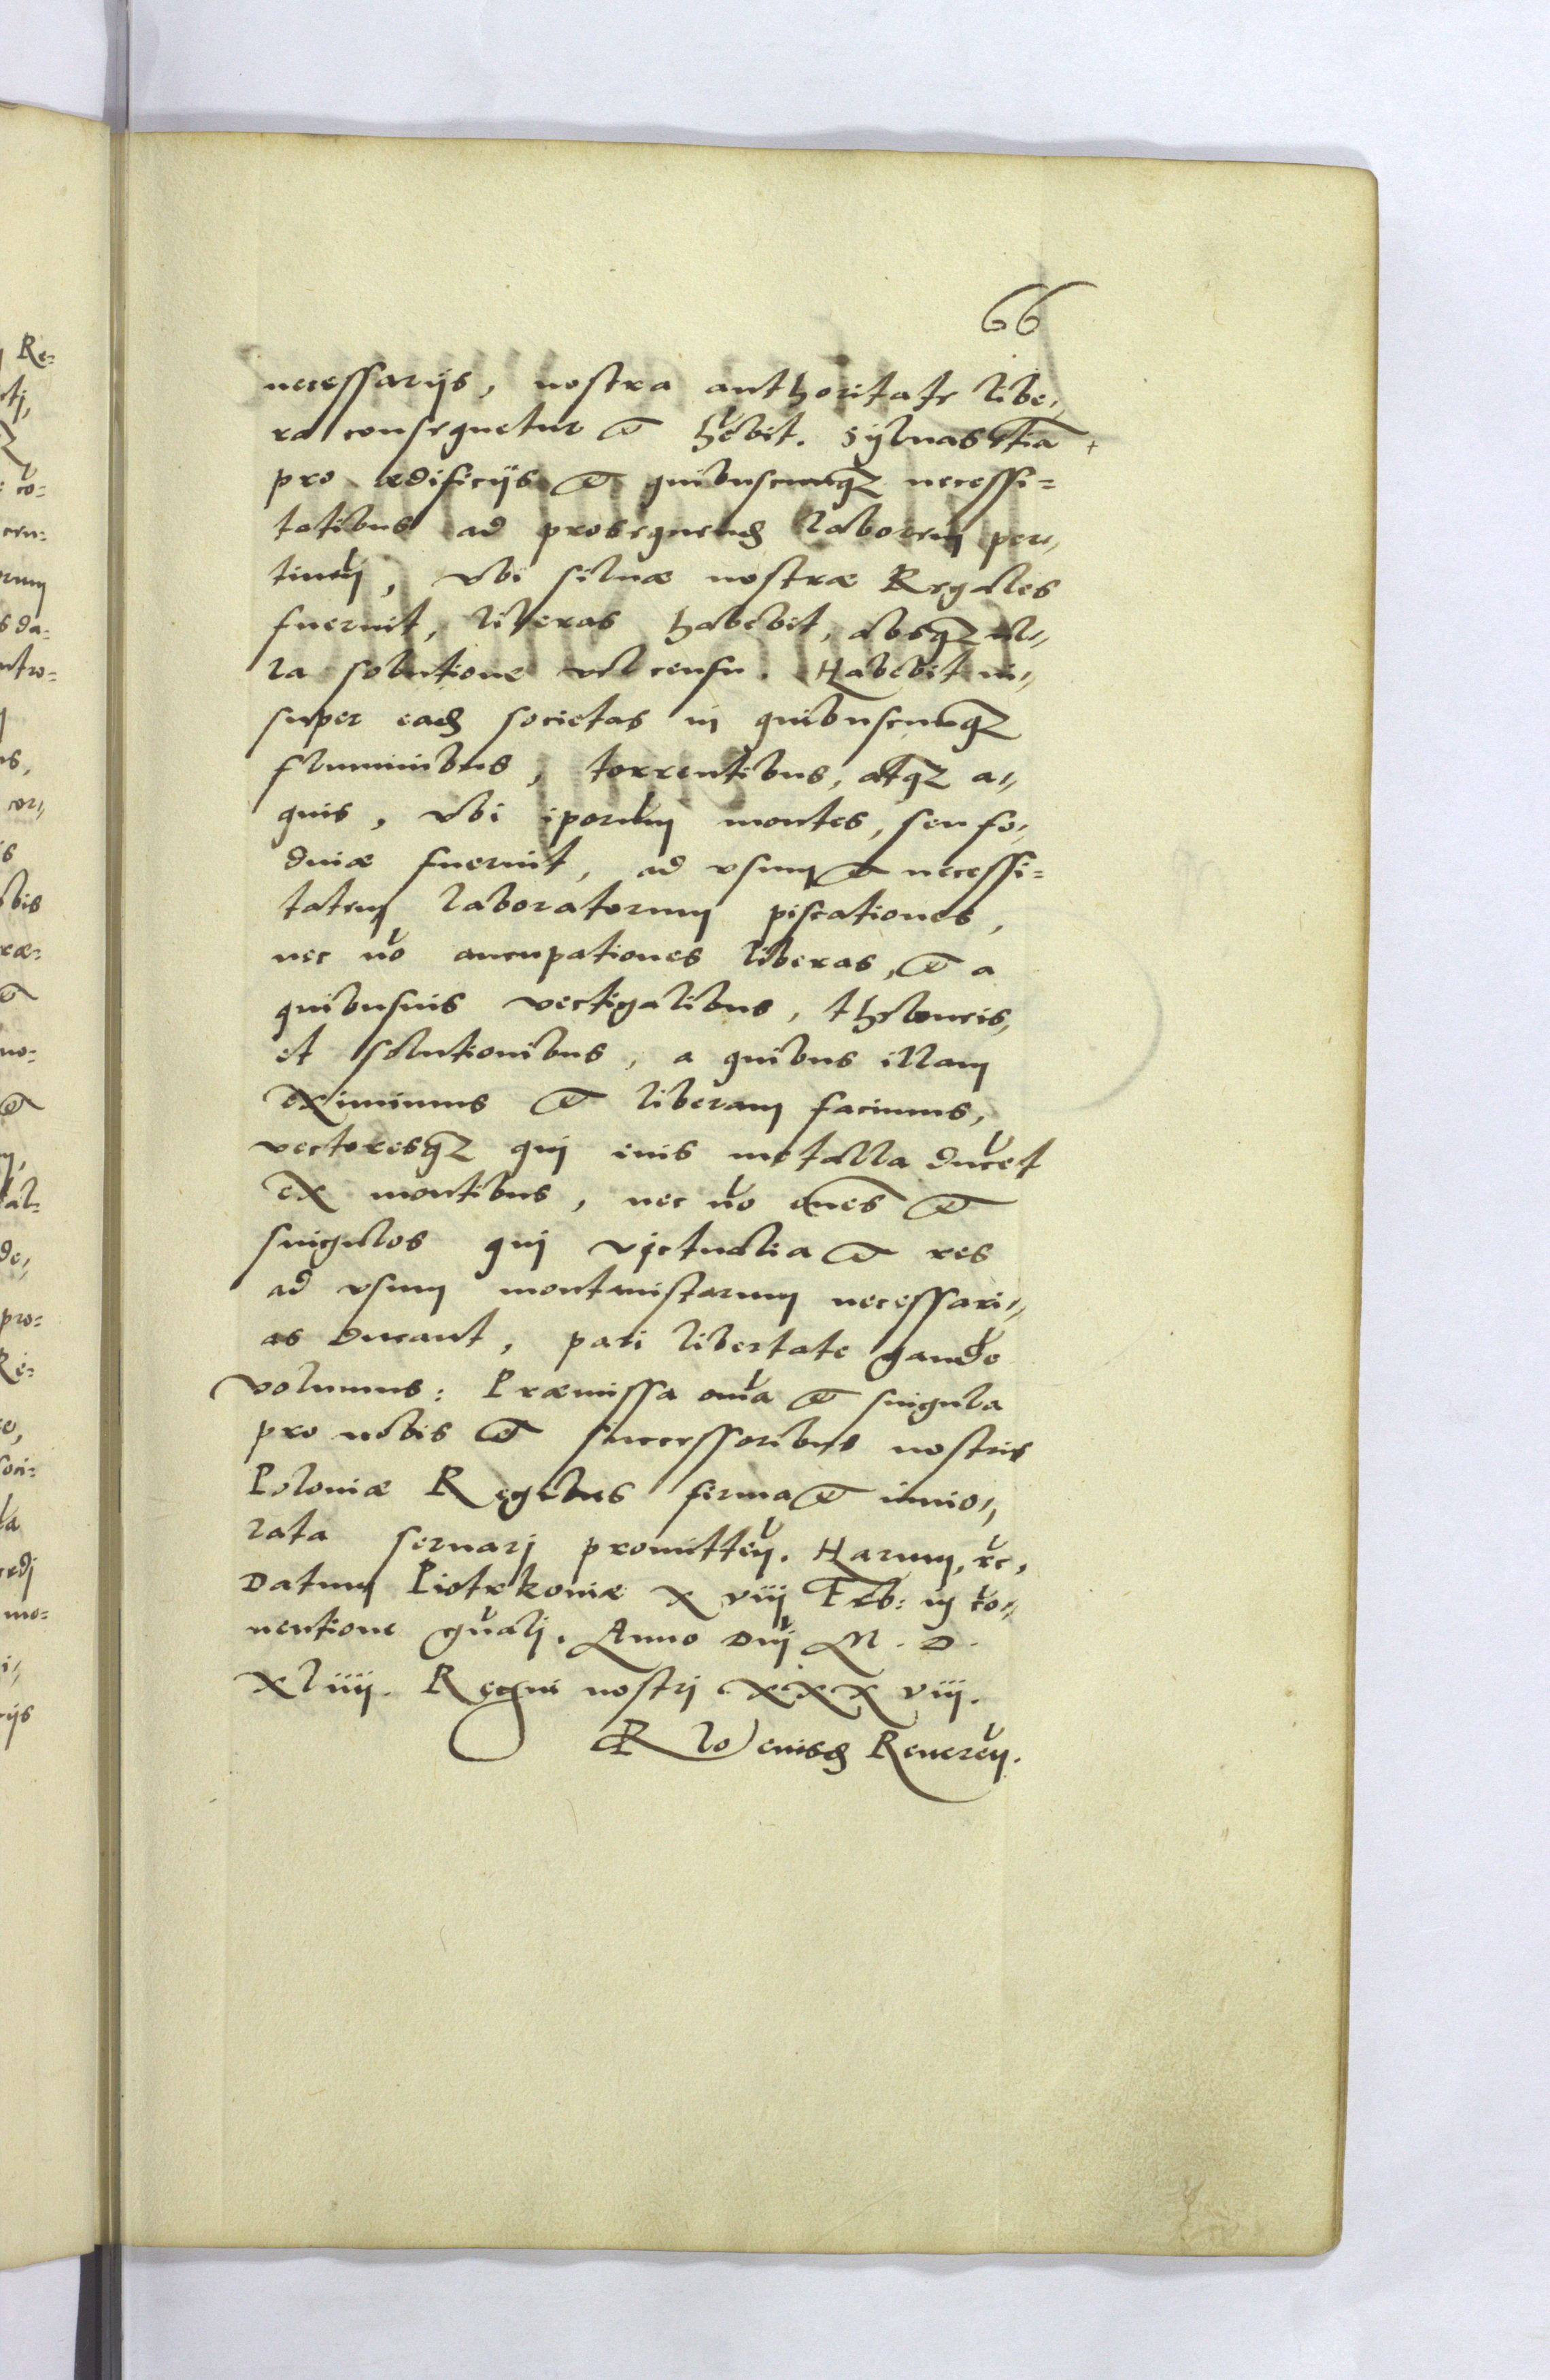 66
necessarijs, nostra authoritate libe„
ra consequetur et hebit. Syluas etia +
pro ædificijs et quibuscumqz necessi=
tatibus ad prosequend laborem per„
tinen, vbi siluæ nostræ Regales
fuerint, liberas habebit, absqz ul„
la solutione vel censu. Habebit in„
super ead societas in quibuscumqz
fluminibus, torrentibus, atqz a„
quis, vbi iporum montes, seu fo„
dinæ fuerint, ad vsum et necessi=
tatem laboratorum piscationes,
nec no aucupationes liberas, et a
quibusuis vectigalibus, theloneis,
et solutionibus, a quibus illam
eximimus et liberam facimus,
vectoresqz qui eius metalla ducet
ex montibus, nec no omes et
singulos qui victualia et res
ad vsum montanistarum necessari„
as ducant, pari libertate gaude
volumus: Præmissa omia et singula
pro nobis et successoribus nostris
Poloniæ Regibus firma et inuio„
lata seruarj promitten. Harum, rc,
Datum Piotrkoniæ X viij Feb: in co„
nentione gnalj. Anno Dnj M. D.
Xliiij. Regni nostrj XXX viij.
R lo eiusd Reueren.
Re=
co=
rum
s da=
ntro=
bis
ræ=
no=
de„
pro=
Re=
mo=
ijs